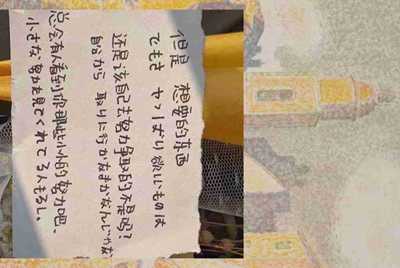 但是 想要的东西
でもさ やっぱり欲しいものは
还是该自己去努力争取的不是吗?
自分から 取りに行かなきゃなんじゃな
总会有人看到你那些小小的努力吧、
小さな努力見てくれてる人もるし、